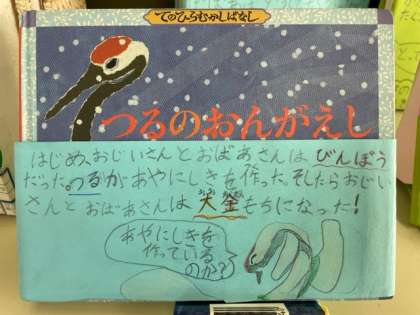 てのひらむかしばなし
つるのおんがえし
はじめ、おじいさんとおばあさんは、びんぼう
だった。つるがあやにしきを作った。そしたらおじい
さんとおばあさんは大金もちになった!
あやにしきを
作っている
のか?